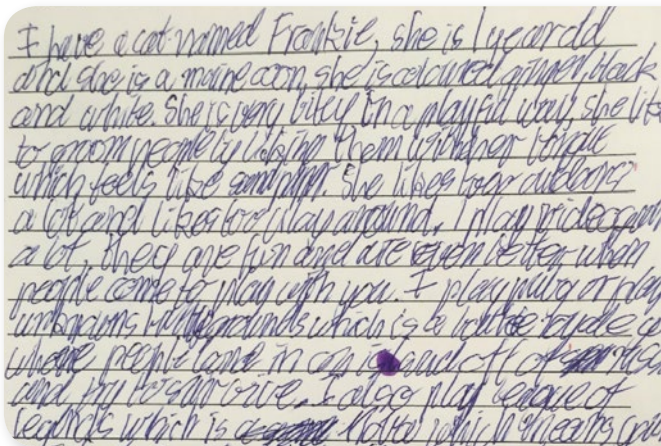 I have a cat named Frankie, she is 1 year old
and she is a maine coon, she is coloured ginger, black
and white. She is very bitey in a playful way, she like
to groom people by licking them with her tongue
which feels like She likes to go outdoors
a lot and likes to play around. I play videogam
a lot, they are fun and are even better when
people come to play with you. I play pubg or play
unknowns battlegrounds which is a battle royale
where people land in an island off of
and try to survive. I also play league of
legends which is a which means